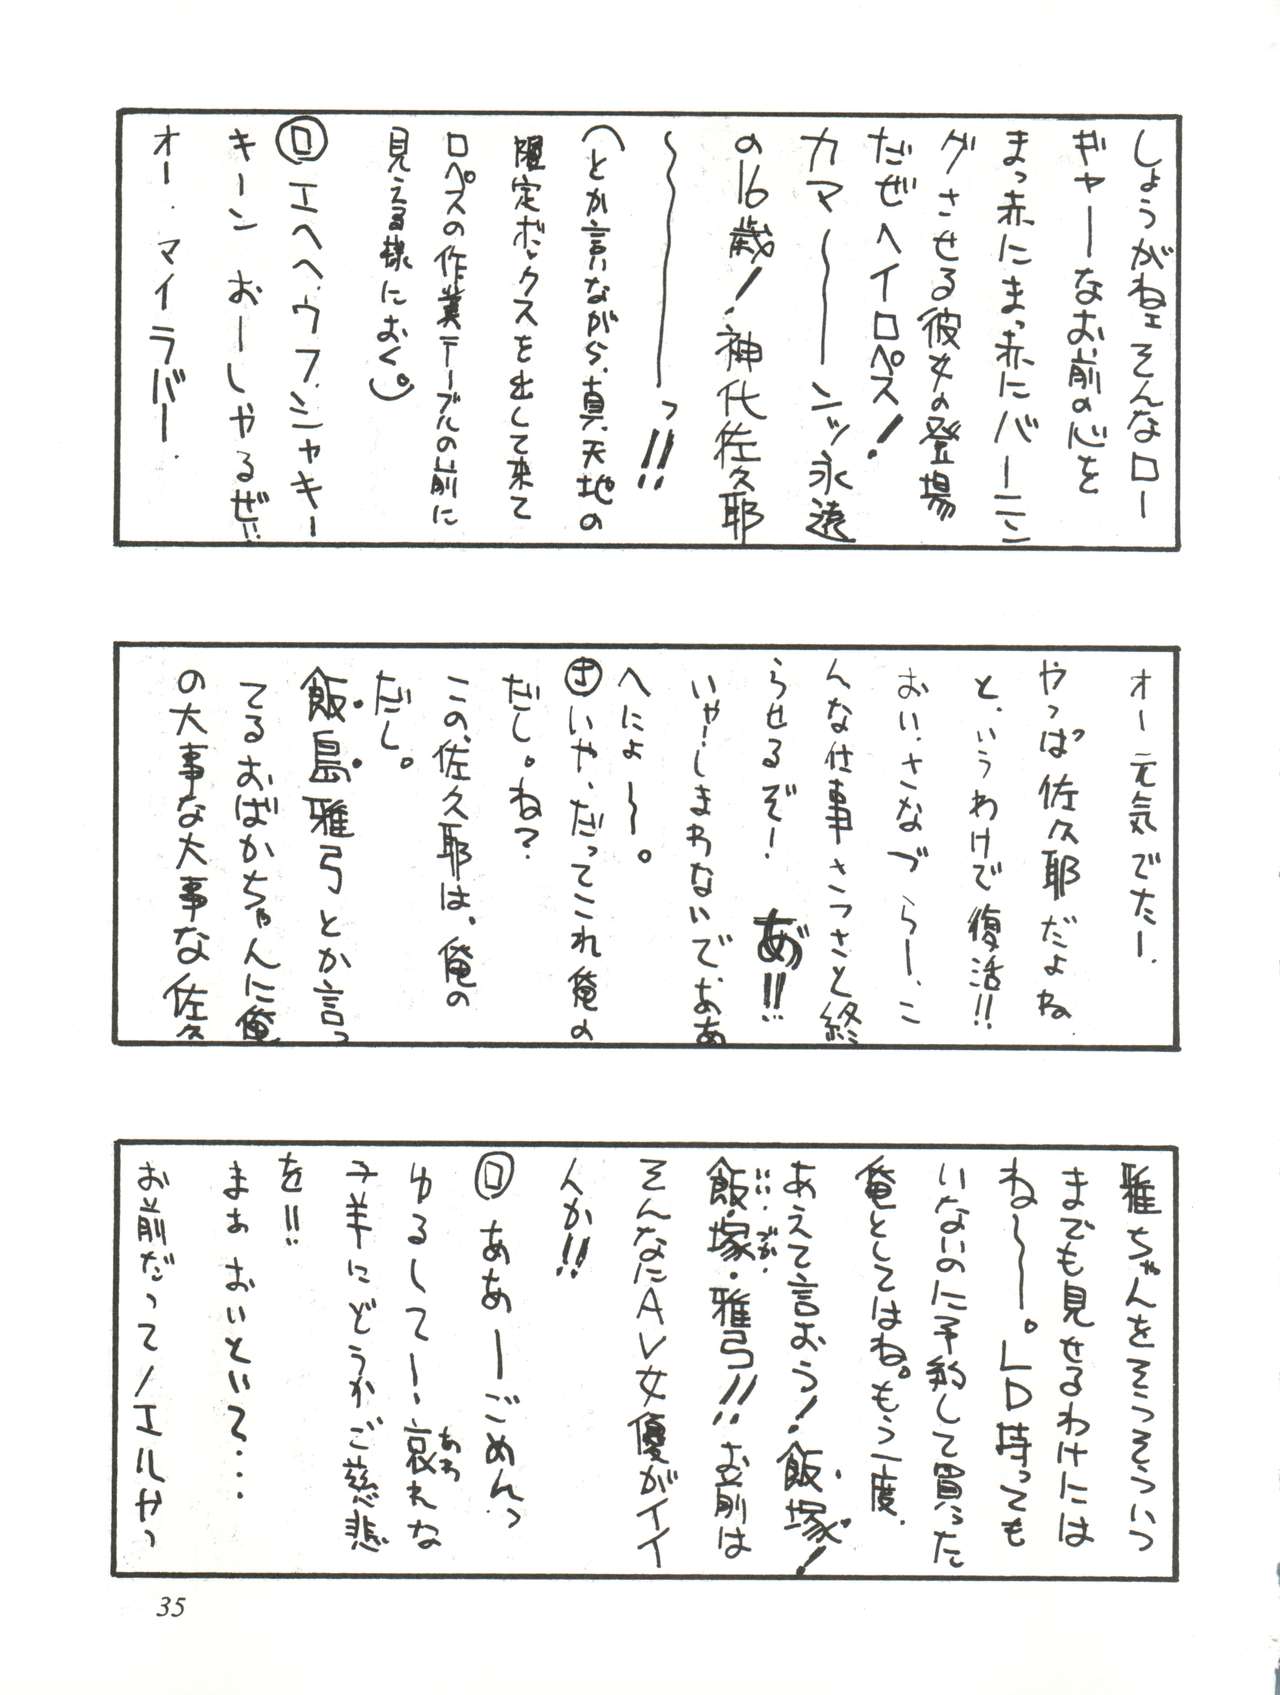 しょうがねェそんなロー
ギャーなお前の心を
まっ赤にまっ赤にバーニン
グさせる彼女の登場
だぜヘイロペス！
カマ〜〜ンッ永遠
の16歳！神代佐久耶
〜〜〜〜っ!!
（とか言いながら、真・天地の
限定ボックスを出して来て
ロペスの作業テーブルの前に
見える様におく。）
ロ エヘヘ、ウフ、シャキー
キーン おーしゃるぜ!!
オー・マイラバー。
オー元気でたー。
やっぱ佐久耶だよね。
と、いうわけで復活!!
おい、さなづらー、こ
んな仕事さっさと終
らせるぞー！ あ゛!!
いやーしまわないでぉぁぁ
へにょ〜。
さ いや、だってこれ俺の
だし。ね？
この、佐久耶は、俺の
だし。
飯島雅弓とか言っ
てるおばかちゃんに俺
の大事な大事な佐久
雅ちゃんをそうそういつ
までも見せるわけには
ね〜〜。LD持っても
いないのに予約して買った
俺としてはね。もう一度、
あえて言おう！飯塚！
飯・塚・雅弓!!お前は
いい・づか・
そんなにAV女優がイイ
んか!!
ロ ああーごめんっ
ゆるしてー、哀れな
あわ
子羊にどうかご慈悲
を!!
まぁ おいといて・・・
お前だってノエルやっ
35